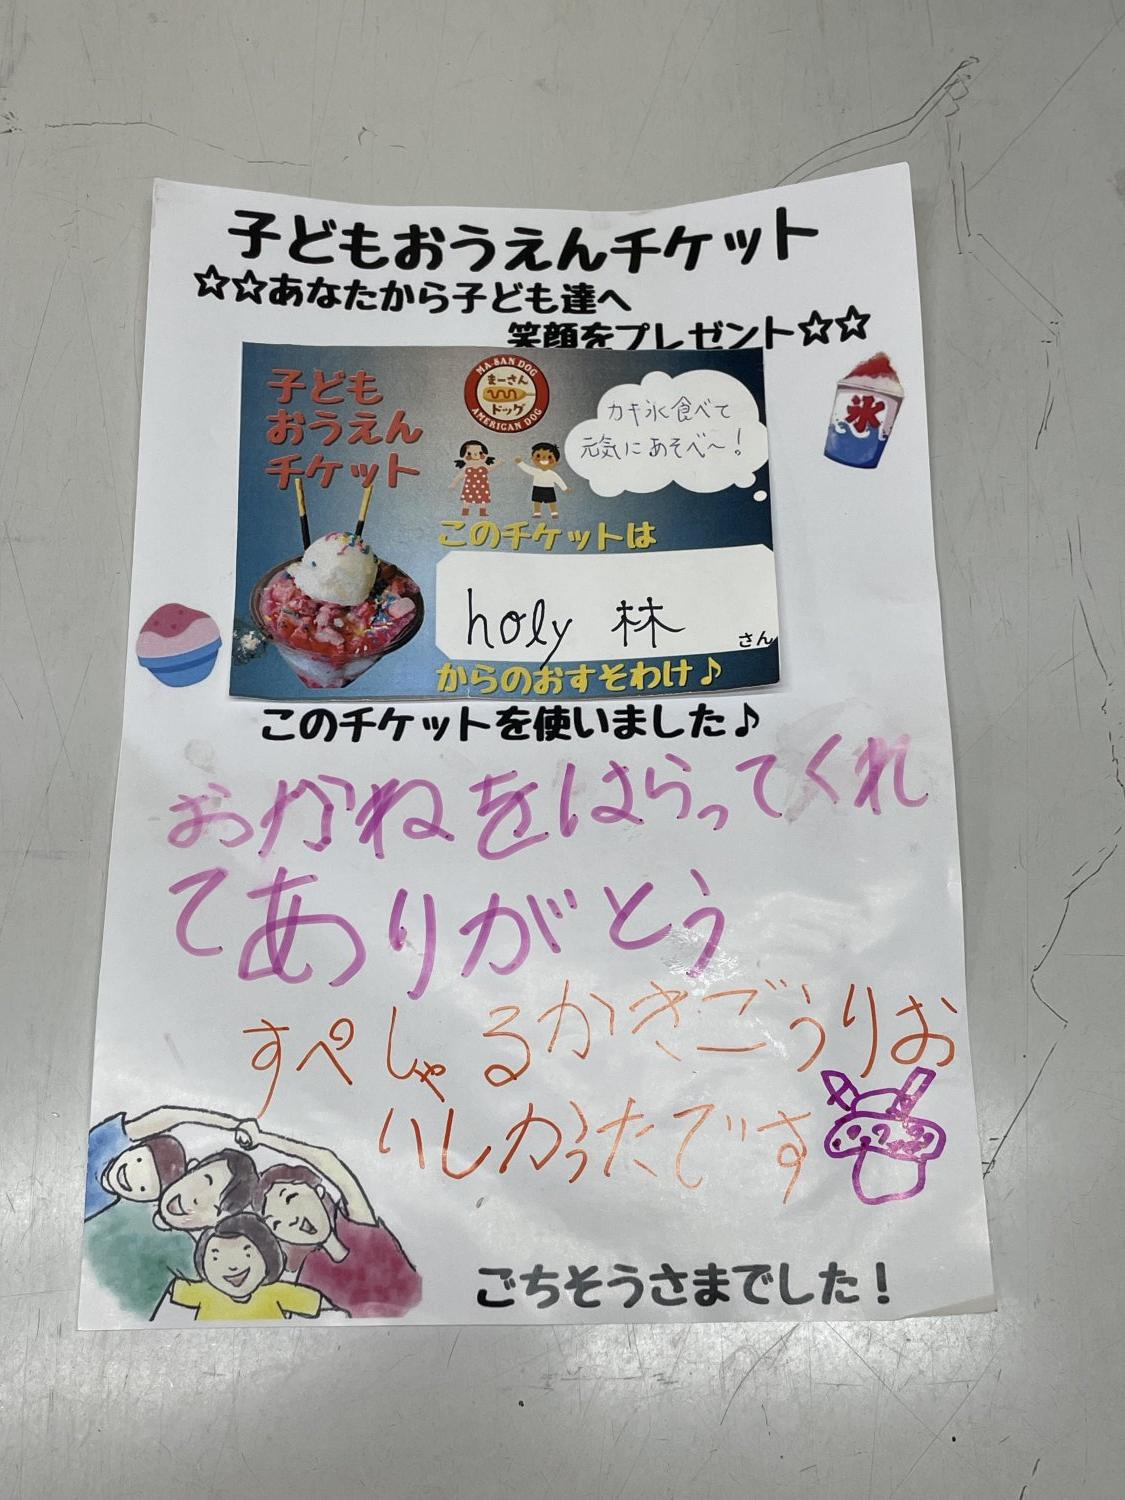 子どもおうえんチケット
☆☆あなたから子ども達へ
笑顔をプレゼント☆☆
子ども
おうえん
チケット
MA-SAN DOG
まーさん
ドッグ
AMERICAN DOG
カキ氷食べて
元気にあそべ〜!
氷
このチケットは
holy 林
さん
からのおすそわけ♪
このチケットを使いました♪
おかねをはらってくれ
てありがとう
すぺしゃるかきごうりお
いしかうたです
ごちそうさまでした!